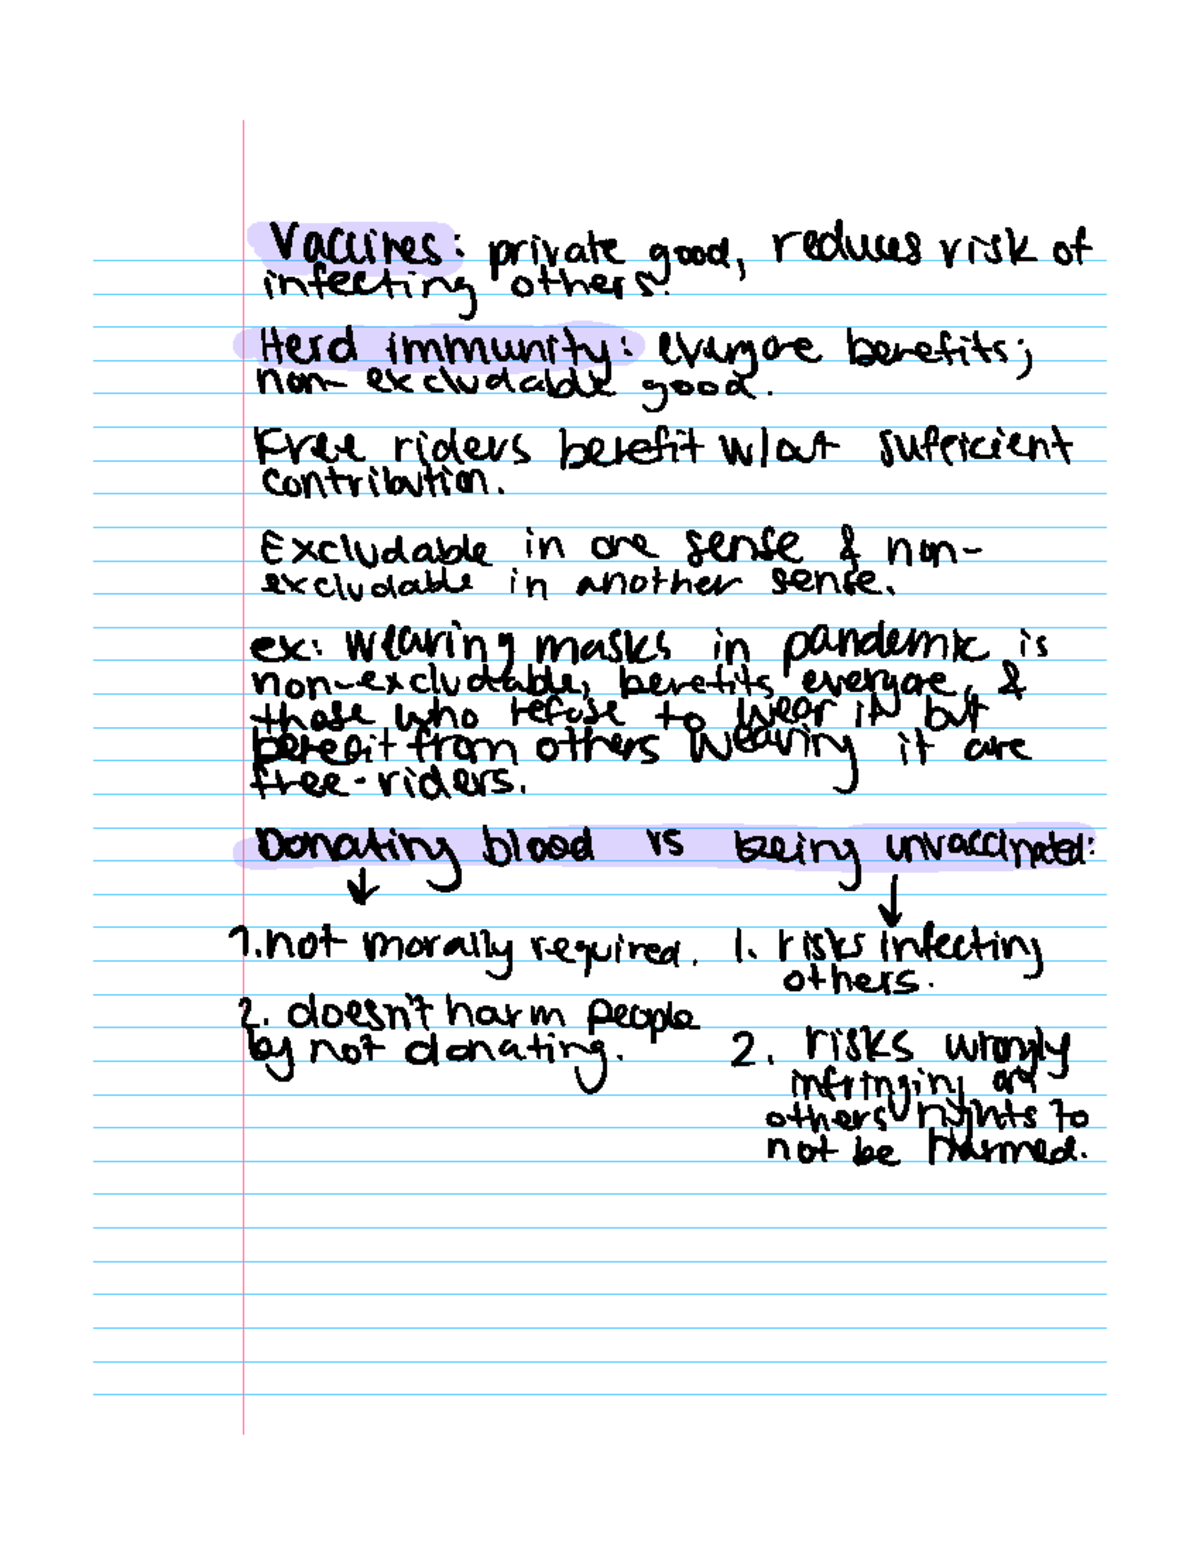 Vaccines: private good, reduces risk of
infecting others.
Herd immunity: everyone benefits;
non-excludable good.
Free riders benefit w/out sufficient
contribution.
Excludable in one sense & non-
excludable in another sense.
ex: wearing masks in pandemic is
non-excludable, benefits everyone, &
those who refuse to wear it but
benefit from others wearing it are
free-riders.
Donating blood vs being unvaccinated:
1. not morally required.
2. doesn't harm people
by not donating.
1. risks infecting
others.
2. risks wrongly
infringing on
others' rights to
not be harmed.